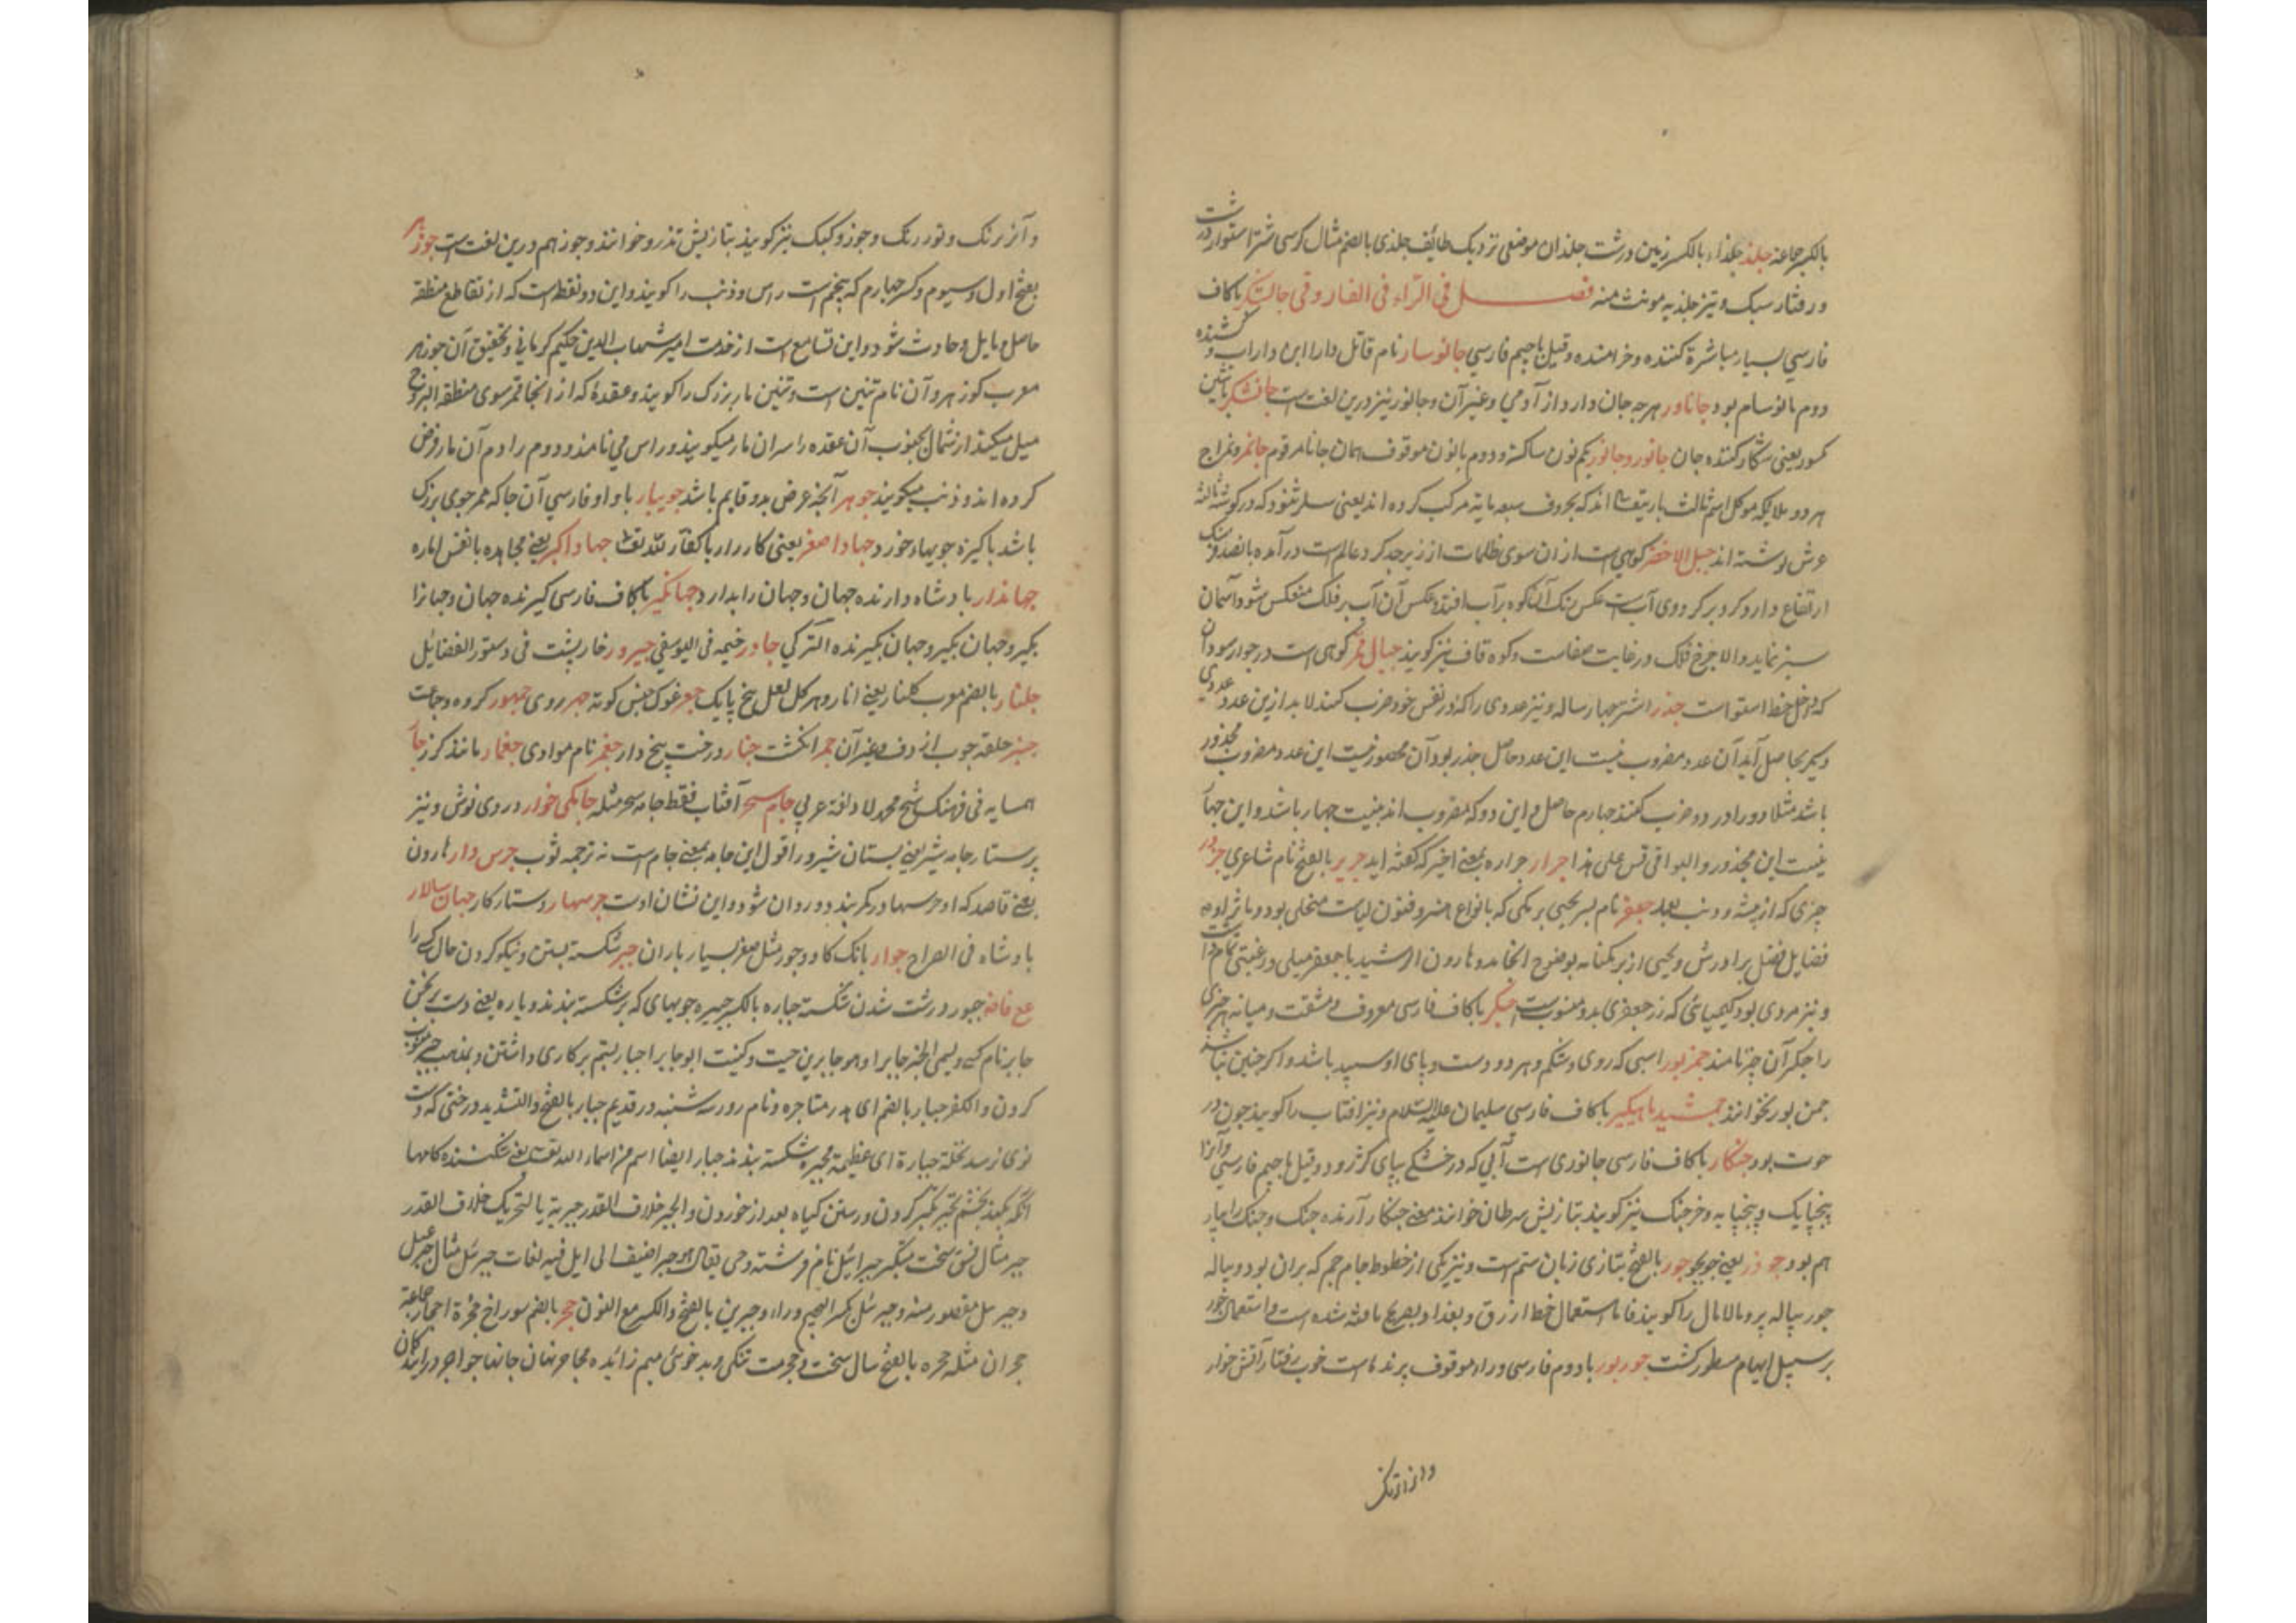 بالکسر جماعة جلذ جلذاء بالکسر زمین درشت جلذان موضعی نزدیک طائف جلذی بالضم مثال کرسی شتر استوار درشت
و رفتار سبک و تیز جلذیه مونث منه فصل فی الراء فی الفارو قی جالشکر با کاف
فارسی بسیار مباشرة کننده و خرامنده و قیل با جیم فارسی جانوسار نام قاتل دارا ابن داراب و کشنده
دوم مانوسام بود جاناور هر چه جان دارد از آدمی و غیر آن و جانور نیز درین لغت است جانشکر با شین
کمسور یعنی شکار کننده جان جانور و جانور یکم نون ساکنه و دوم بانون موقوف همان جانا مرقوم
هر دو ملایکه موکل اسم ثالث باریتعالی اند که بحروف سبعه بایه مرکب کرده اند یعنی
عرش نوشته اند جبل الاخضر کوهی است از ان سوی ظلمات از زبرجد کرد عالم است درآمده پانصد فرسنک
ارتفاع دارد کرد بر کرد وی آب است عکس رنک آن کوه بر آب افتد و عکس آن آب بر فلک منعکس شود و آسمان
سبز نماید و الا چرخ فلک در غایت صفاست و کوه قاف نیز کویند جبال قمر کوهی است در جوار سودان
که داخل خط استوا است جذر اشتر چهار ساله و نیز عددی را که در نفس خود ضرب کنند لابد ازین عدد عددی
دیگر بحاصل آید آن عدد مضروب نیست این عدد حاصل جذر بود آن محصور نیست این عدد مضروب مجذور
باشد مثلا دو را در دو ضرب کنند چهارم حاصل و این دو که مضروب اند نیست چهار باشد و این چهار
نیست این مجذور و البواقی قس علی هذا جرار جراره بمعنی اخیر که کفته اید جریر بالفتح نام شاعری
چیزی که از پیشه و دنب جعفر نام پسر یحیی برمکی که بانواع هنر و فنون لیاست متحلی بود و
فضایل فضل برادرش و یحیی از برمکنامه بوضوح انجامد و هارون الرشید با جعفر میلی و رغبتی تمام داشت
و نیز مردی بود کیمیائی که زر جعفری بدو منسوب است جکر با کاف فارسی معروف و مشقت و میانه هر چیزی
را جکر آن چیز نامند جمز بور اسبی که روی و شکم و هر دو دست و پای او سپید باشد و اکر چنین نباشد
جمن بور نخوانند جمشید ماهیکیر با کاف فارسی سلیمان علیه السلام و نیز افتاب را کویند چون در
حوت بود جنکار با کاف فارسی جانوری است آبی که در خشکی بپای کژ رود و قیل با جیم فارسی و آنرا
پنجپایک و پنجپایه و خرجنک نیز کویند بتازیش سرطان خوانند معنی جنکار آرنده جنک و جنک را
هم بود جو ذر یعنی جو بجو جور بالفتح بتازی زبان ستم است و نیز یکی از خطوط جام جم که بران بود و پیاله
جور پیاله پر و مالامال را کویند فاما استعمال خط ازرق و بغداد و بصره یافته شده است و استعمال جور
بر سبیل ایهام مسطور کشت جور بور با دوم فارسی و راء موقوف پرنده است خوب رفتار آتش خوار
و انرا ترنک
و آنرا ترنک و تورنک و جوز و کبک نیز کویند بتازیش تذرو خوانند و جوز هم درین لغت است جوزهر
بفتح اول و سیوم و کسر چهارم که پنجم است راس و ذنب را کویند و این دو نقطه است که از تقاطع منطقه
حاصل و مایل حادث شود و این تسامع است از خدمت امیر شهاب الدین حکیم کرمانی و تحقیق آن جوزهر
معرب کوزهر و آن نام تنین است و تنین مار بزرک را کویند و عقدهٔ که از انجا قمر سوی منطقه البروج
میل میکند از شمال بجنوب آن عقده را سر آن مار میکویند و راس می نامند و دوم را دم آن مار فرض
کرده اند و ذنب میکویند جوهر آنچه عرض بدو قایم باشد جویبار با واو فارسی آن جا که ممر جوی بزرک
باشد با کیزه جویهاء خورد جهاد اصغر یعنی کارزار با کفار لله تعالی جهاد اکبر یعنی مجاهده با نفس اماره
جهاندار بادشاه دارنده جهان و جهان را بدار و جهانکیر با کاف فارسی کیرنده جهان و جهانرا
بکیر و جهان بکیر و جهان بکیرنده الترکی جادر خیمه فی الیوسفی جیرور خارپشت فی دستور الفضایل
جلنار بالضم معرب کلنار یعنی انار و هر کل لعل پنج پایک جعر غوک جنس کوته جهر روی جمهور کروه و جماعت
جنبر حلقه چوب از دف و غیر آن جمر انکشت جنار درخت پنج دار جغمر نام موادی جغمار مانند کرز جار
همسایه فی فرهنک شیخ محمد لاد لغة عربی جام سحر آفتاب فقط جامه سحر مثله جامکی خوار دردی نوش و نیز
پرستار جامه شیر یعنی پستان شیرور اقول این جامه بمعنی جام است نه ترجمه ثوب جرس دار هارون
یعنی قاصد که او جرسها در کمر بندد و روان شود و این نشان اوست جرمهار دستار کار جهان سالار
بادشاه فی الصراح جوار بانک کاو و جور مثل صغر بسیار باران جبر شکسته بستن و نیکو کردن حال کسی را
جبور درست شدن شکسته جباره بالکسر جبیره چوبهای که بر شکسته بندند و یاره یعنی دست برنجن
جابر نام کسی و یسمی الخبز جابرا و هو جابر بن حبة و کنیت ابو جابر اجبار بستم بر کاری داشتن و بمذهب جبر منسوب
کردن و الکفر جبار بالضم ای هدر متاجره و نام روز سه شنبه در قدیم جبار بالفتح و التشدید درختی که دست
نوی نرسد نخلة جبارة ای عظیمة مجبر شکسته بندنده جبار ایضا اسم من اسماء الله تعالی یعنی شکننده کامها
آنکه بکشد بخشم تجبر تکبر کردن و رستن کیاه بعد از خوردن و الجبر خلاف القدر جبریة بالتحریک خلاف القدر
جبر مثال فسق سخت متکبر جبرائیل نام فرشته وحی یقال هو جبر اضیف الی ایل فیه لغات جبرئل مثال جبرعیل
و جبرئل مقصور منه و جبرئل بکسر الجیم و راء و جبرین بالفتح و الکسر مع النون جحر بالضم سوراخ جحرة اجحار جماعة
جحران مثله جحره بالفتح سال سخت و جحرمت تنکی و بد خوئی میم زائده